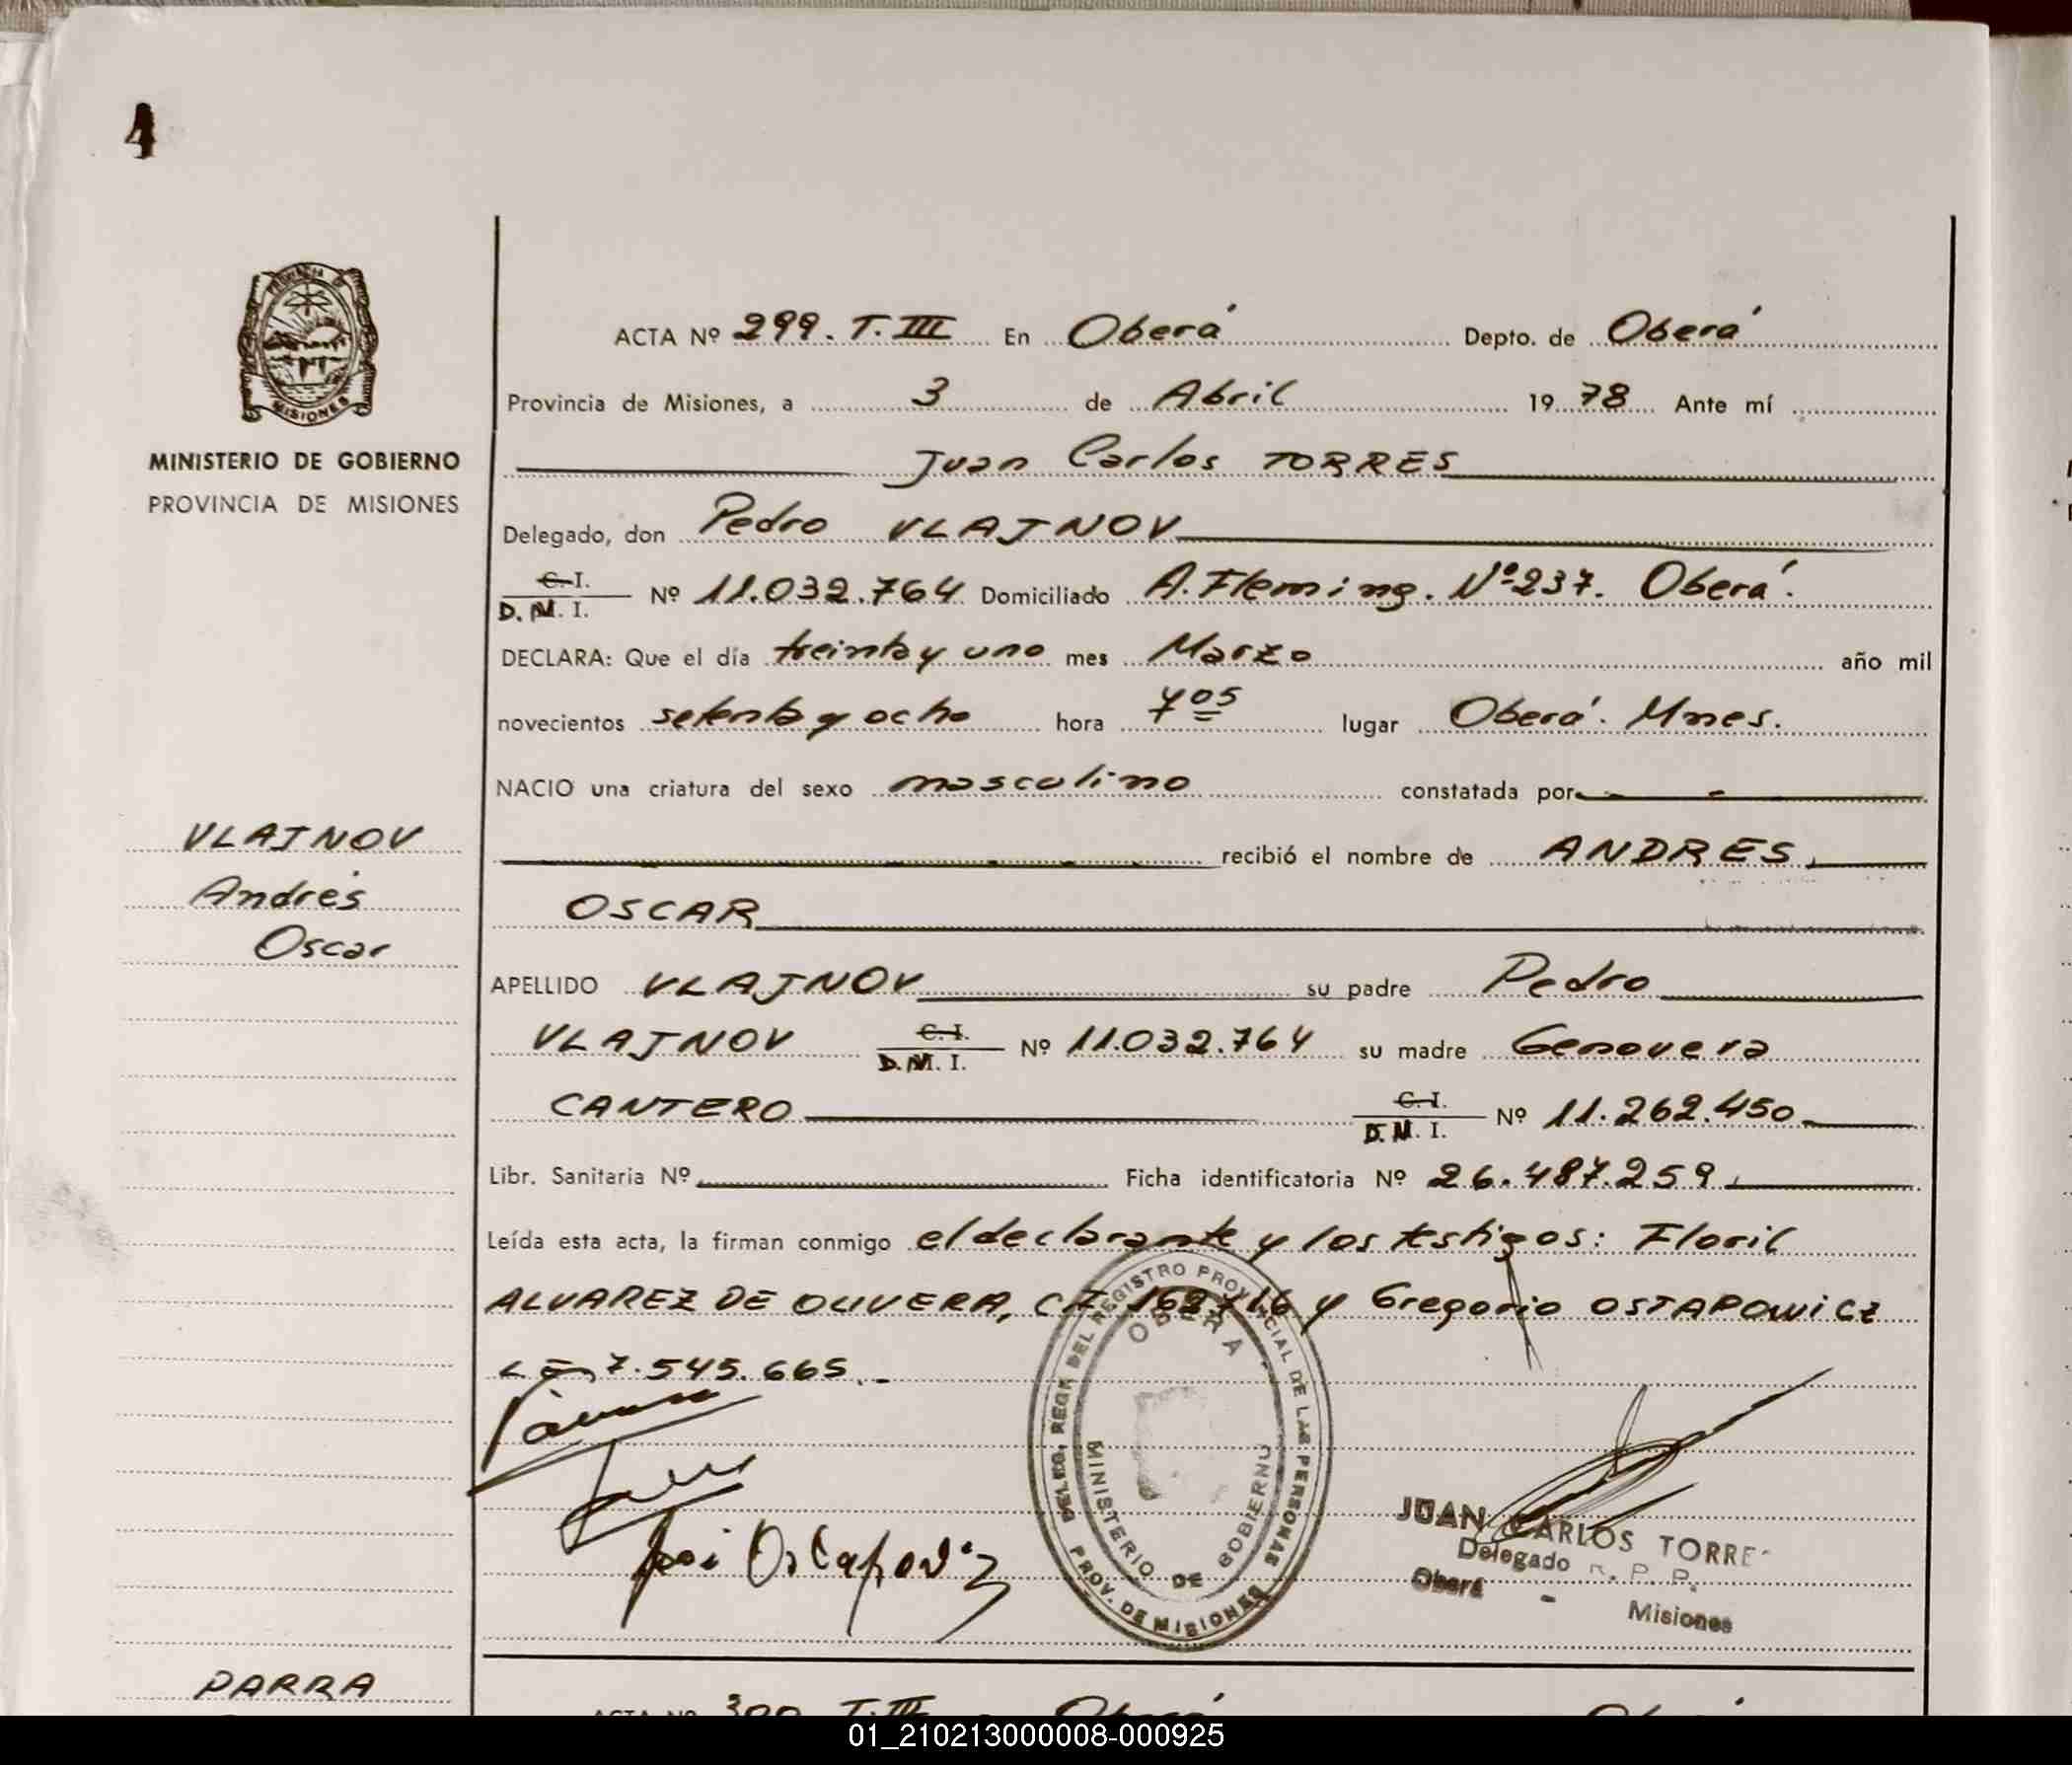 4
PROVINCIA D
MISIONES
MINISTERIO DE GOBIERNO
PROVINCIA DE MISIONES
ACTA Nº 299. T. III En Oberá Depto. de Oberá
Provincia de Misiones, a 3 de Abril 1978 Ante mí
Juan Carlos TORRES
Delegado, don Pedro VLAJNOV
C.I.
D.N.I. Nº 11.032.764 Domiciliado A. Fleming. Nº 237. Oberá.
DECLARA: Que el día treinta y uno mes Marzo año mil
novecientos setenta y ocho hora 7 05 lugar Oberá. Mnes.
NACIO una criatura del sexo masculino constatada por
VLAJNOV
recibió el nombre de ANDRES
Andrés
OSCAR
Oscar
APELLIDO VLAJNOV su padre Pedro
VLAJNOV C.I. D.N.I. Nº 11.032.764 su madre Genoveva
CANTERO C.I. D.N.I. Nº 11.262.450
Libr. Sanitaria Nº Ficha identificatoria Nº 26.487.259
Leída esta acta, la firman conmigo el declarante y los testigos: Floril
ALVAREZ DE OLIVERA, CI y Gregorio OSTAPOWICZ
LE 7.545.665.-
DELEG. REGN DEL REGISTRO PROVINCIAL DE LAS PERSONAS
OBERA
MINISTERIO DE GOBIERNO
PROV. DE MISIONES
JUAN CARLOS TORRE
Delegado R. P. P.
Oberá - Misiones
PARRA
ACTA Nº 300 T. III Oberá
01_210213000008-000925